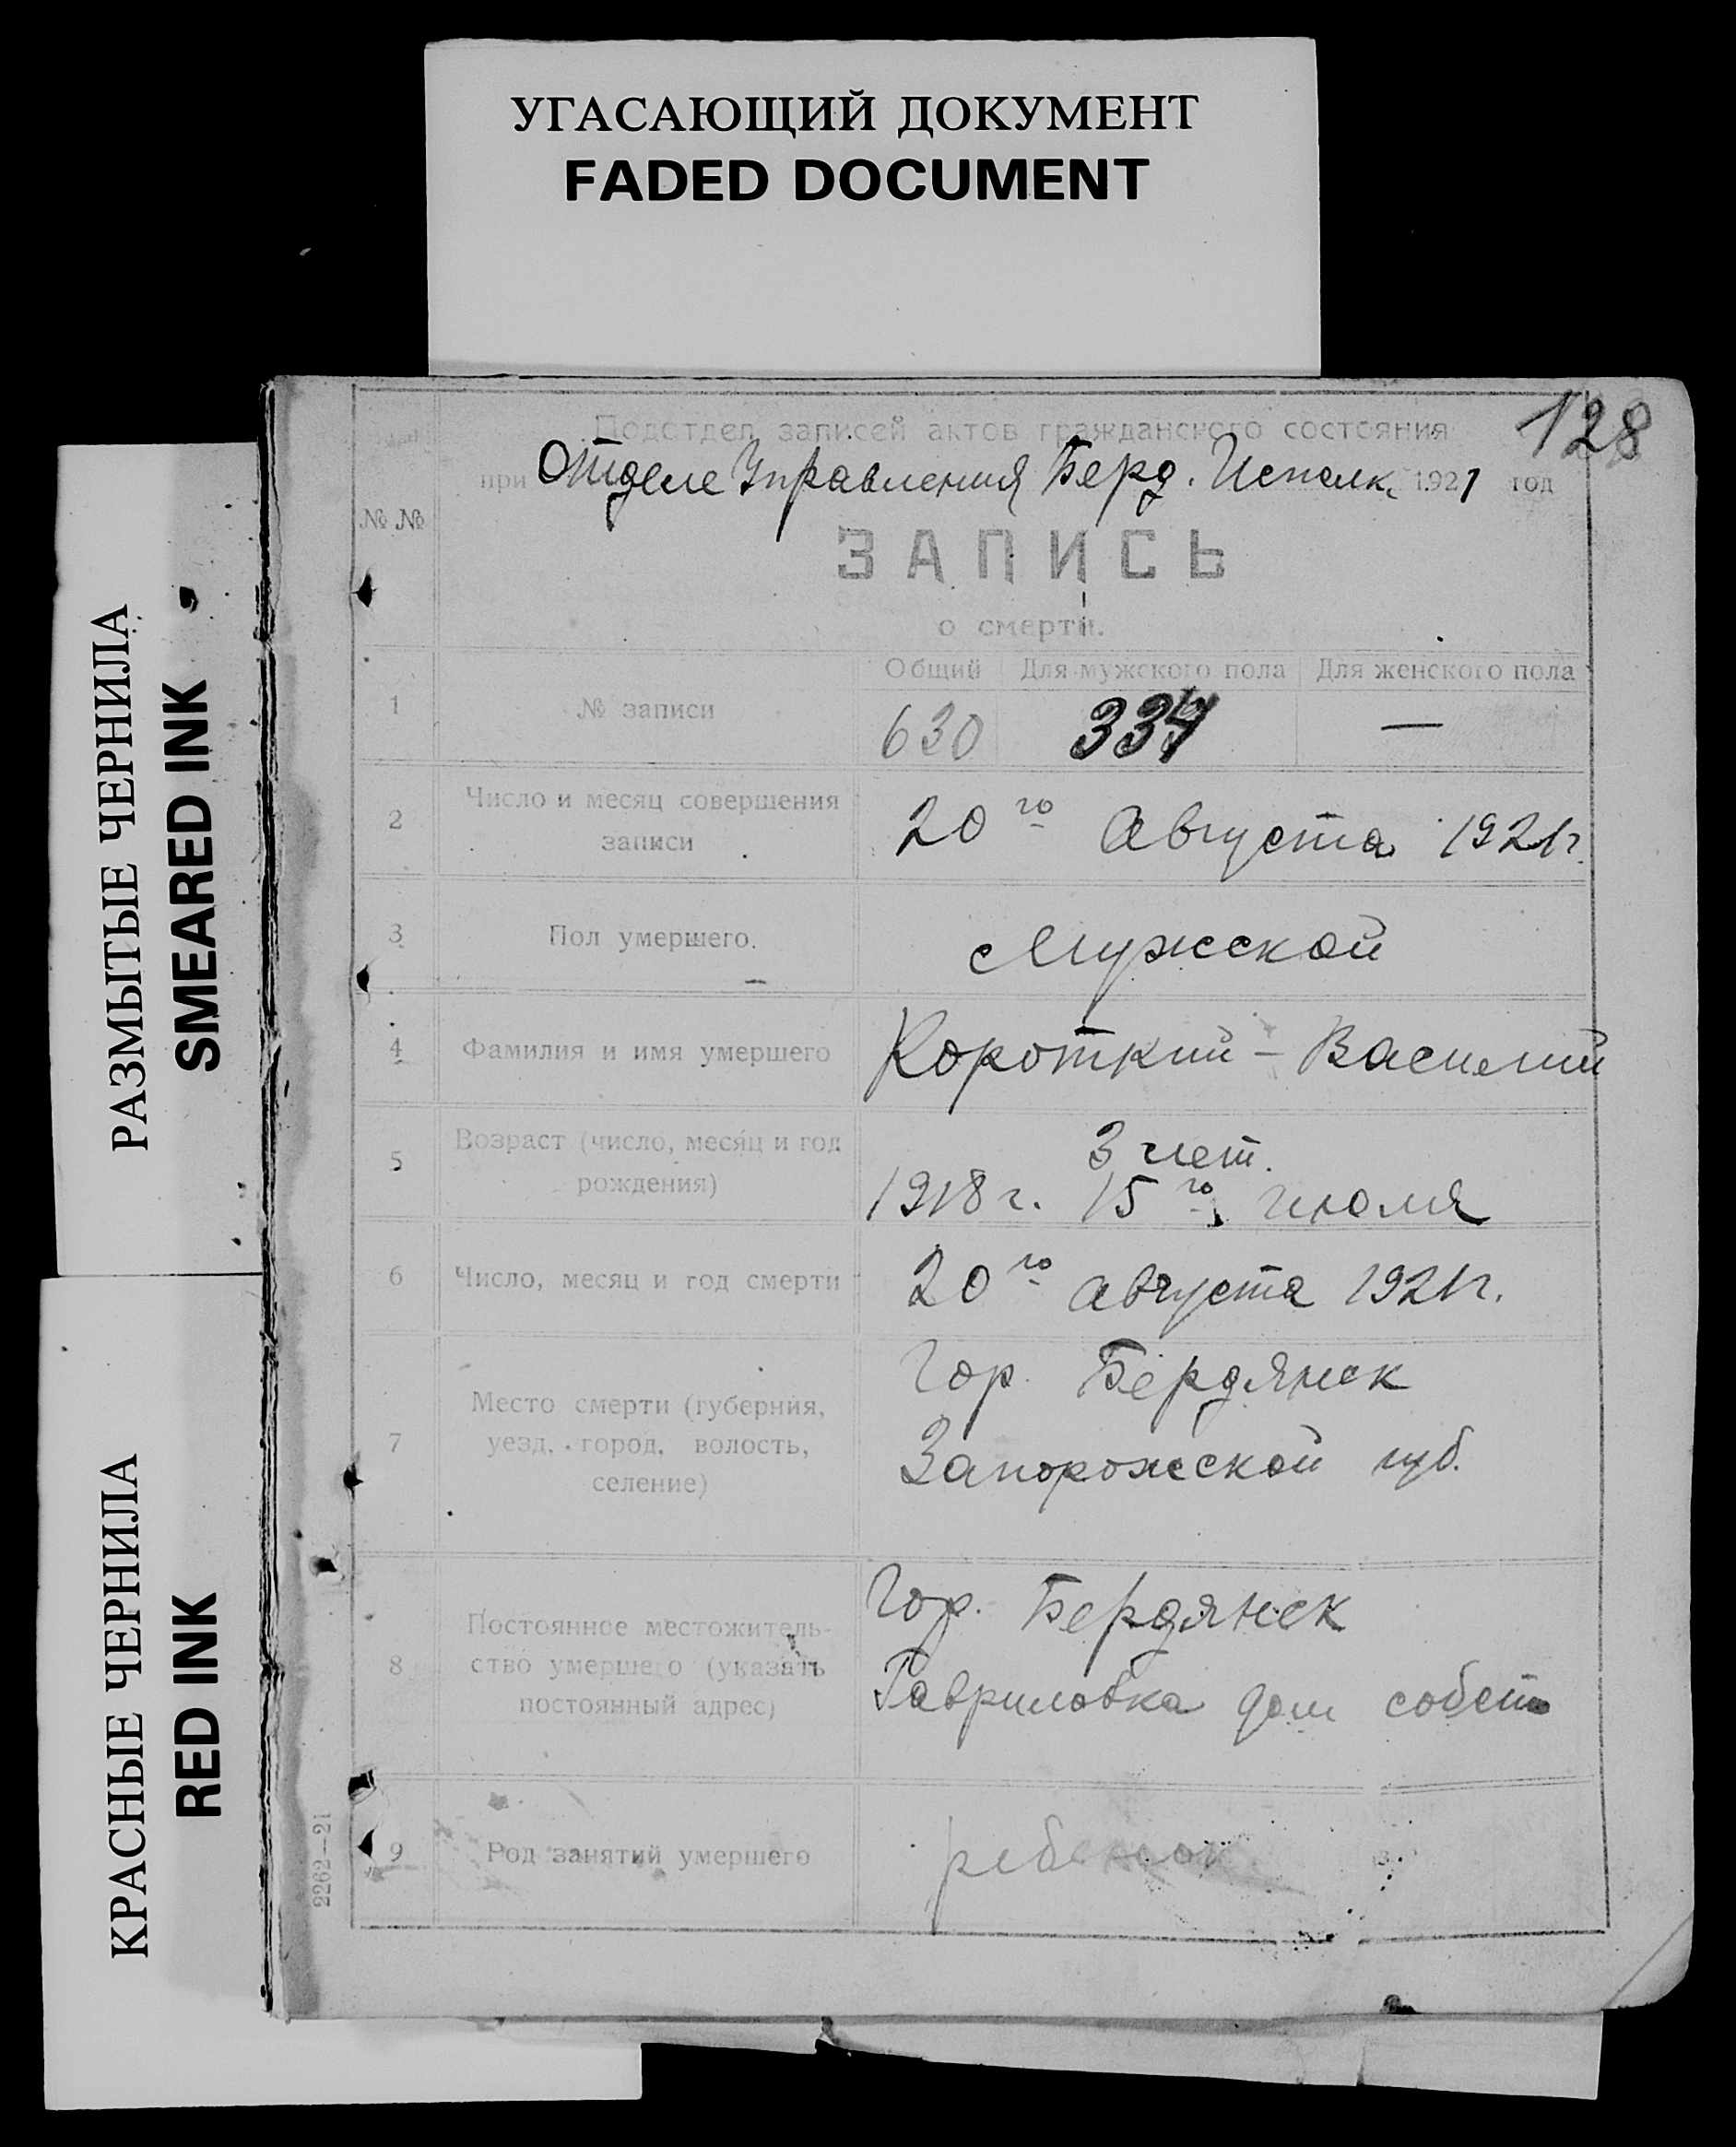 УГАСАЮЩИЙ ДОКУМЕНТ
FADED DOCUMENT
РАЗМЫТЫЕ ЧЕРНИЛА
SMEARED INK
КРАСНЫЕ ЧЕРНИЛА
RED INK
128
Подотдел записей актов гражданского состояния
при Отделе Управления Берд. Исполк. 1921 год
№ №
ЗАПИСЬ
о смерти.
Общий Для мужского пола Для женского пола
1 № записи 630 334 —
2 Число и месяц совершения
записи
20го Августа 1921г.
3 Пол умершего. Мужской
4 Фамилия и имя умершего Короткий - Василий
5 Возраст (число, месяц и год
рождения)
3 лет.
1918 г. 15го июля
6 Число, месяц и год смерти 20го августа 1921г.
7 Место смерти (губерния,
уезд, город, волость,
селение)
Гор. Бердянск
Запорожской губ.
8 Постоянное местожитель-
ство умершего (указать
постоянный адрес)
Гор. Бердянск
Гавриловка дом собств
9 Род занятий умершего ребенок
2262—21